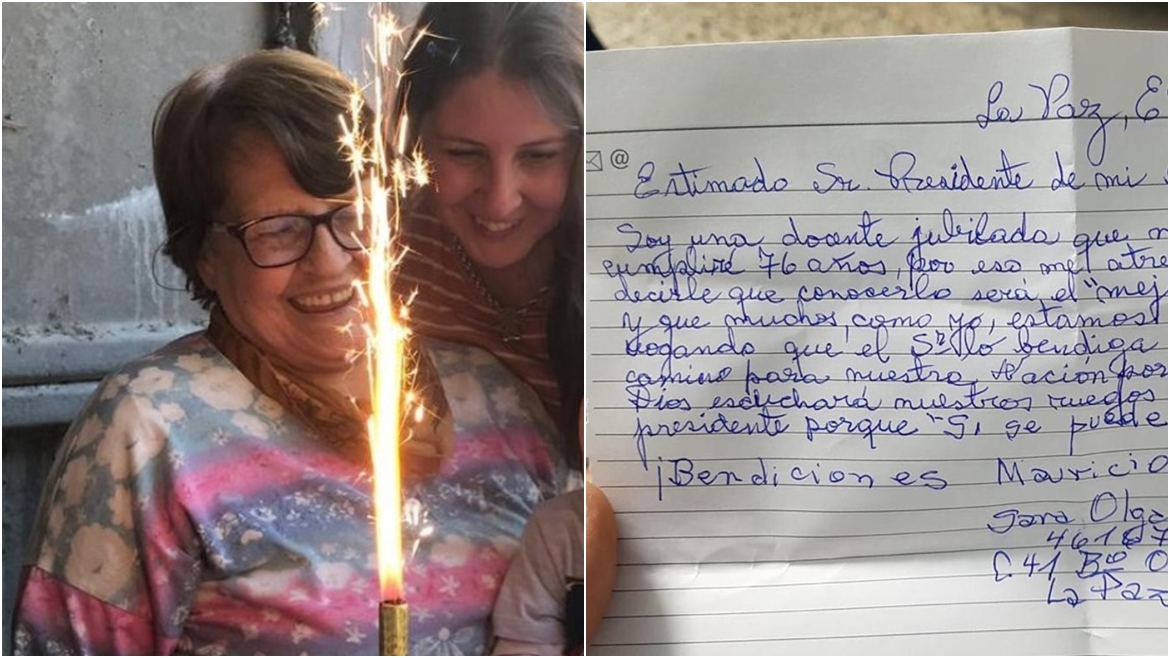 La Paz, E
@
Estimado Sr. Presidente de mi
Soy una docente jubilada que
cumpliré 76 años, por eso me atre
decirle que conocerlo será el "mej
y que muchos, como yo, estamos
rogando que el Sr lo bendiga
camino para nuestra Nación por
Dios escuchará nuestros ruegos
presidente porque "Si se puede
¡Bendiciones Mauricio
Sara Olga
46187
C 41 Bº
La Paz